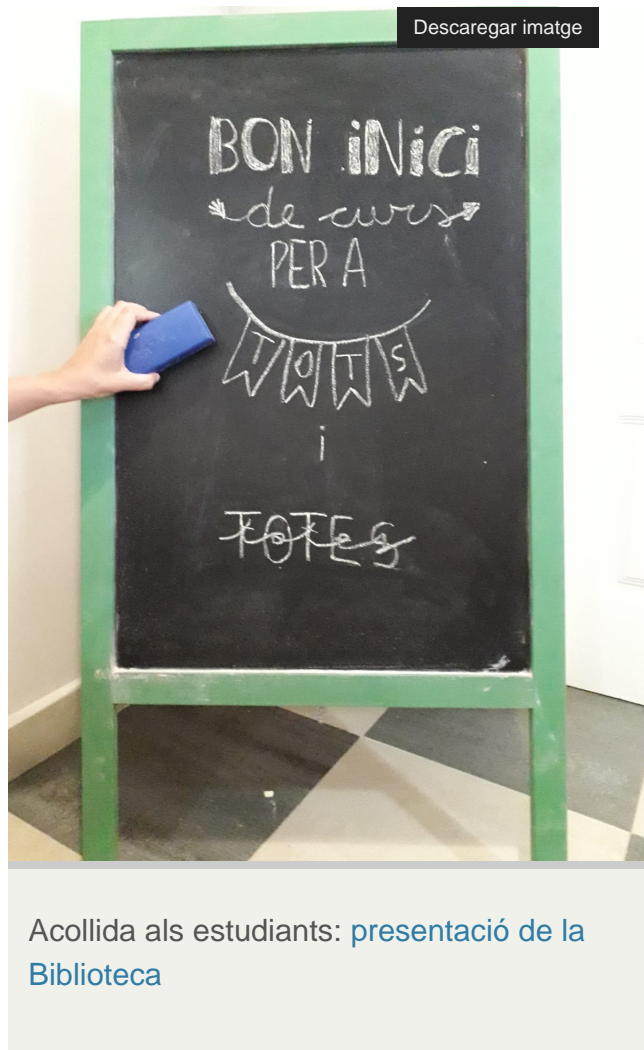 Descaregar imatge
BON iNiCi
de curs
PER A
TOTS
i
TOTES
Acollida als estudiants: presentació de la
Biblioteca